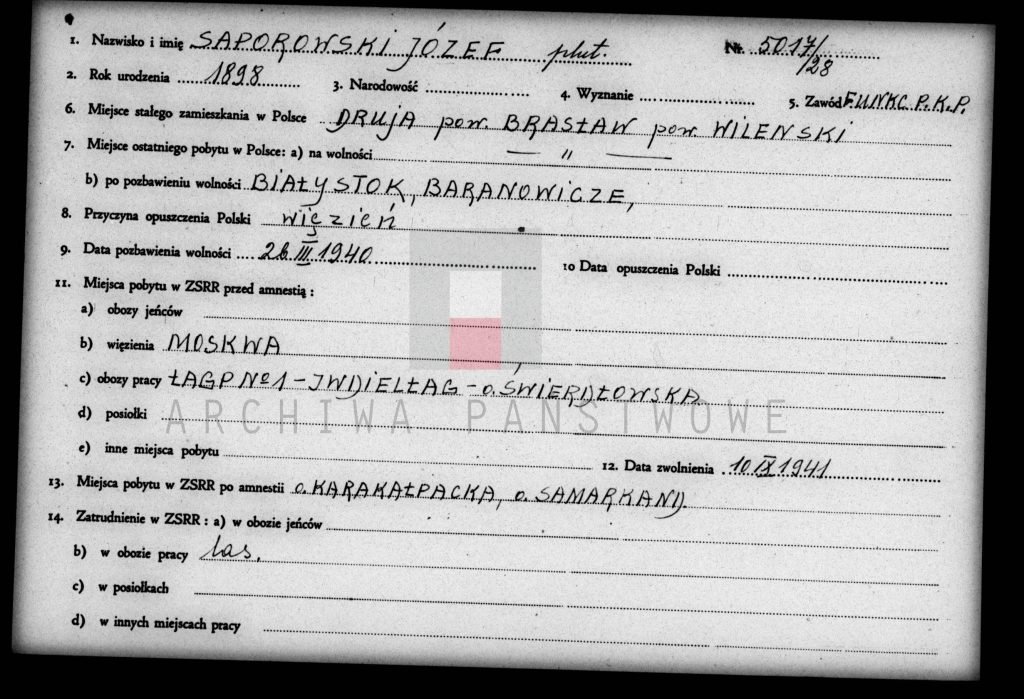 1. Nazwisko i imię SAPOROWSKI JÓZEF plut. Nr. 5017/28
2. Rok urodzenia 1898 3. Narodowość 4. Wyznanie 5. Zawód FUNKC. P.K.P.
6. Miejsce stałego zamieszkania w Polsce DRUJA pow. BRASŁAW pow. WILEŃSKI
7. Miejsce ostatniego pobytu w Polsce: a) na wolności — " —
b) po pozbawieniu wolności BIAŁYSTOK, BARANOWICZE,
8. Przyczyna opuszczenia Polski więzień
9. Data pozbawienia wolności 26 III 1940 10 Data opuszczenia Polski
11. Miejsca pobytu w ZSRR przed amnestią :
a) obozy jeńców
b) więzienia MOSKWA
c) obozy pracy ŁAGP No 1 - IWDIELŁAG - o. ŚWIERDŁOWSKA
ARCHIWA PAŃSTWOWE
d) posiołki
e) inne miejsca pobytu 12. Data zwolnienia 10 IX 1941
13. Miejsca pobytu w ZSRR po amnestii o. KARAKAŁPACKA, o. SAMARKAND.
14. Zatrudnienie w ZSRR : a) w obozie jeńców
b) w obozie pracy las.
c) w posiołkach
d) w innych miejscach pracy